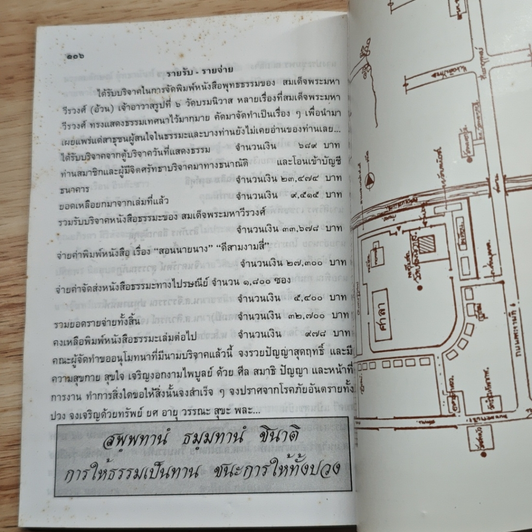 ๑๑๖
รายรับ - รายจ่าย
ได้รับบริจาคในการจัดพิมพ์หนังสือพุทธธรรมของ สมเด็จพระมหา
วีรวงศ์ (อ้วน) เจ้าอาวาสรูปที่ ๖ วัดบรมนิวาส หลายเรื่องที่สมเด็จพระมหา
วีรวงศ์ ทรงแสดงธรรมเทศนาไว้มากมาย คัดมาจัดทำเป็นเรื่อง ๆ เพื่อนำมา
เผยแพร่แด่สาธุชนผู้สนใจในธรรมและบางท่านยังไม่เคยอ่านของท่านเลย...
ได้รับบริจาคจากตู้บริจาควันที่แสดงธรรม จำนวนเงิน ๖๔๙ บาท
ท่านสมาชิกและผู้มีจิตศรัทธาบริจาคมาทางธนาณัติ และโอนเข้าบัญชี
ธนาคาร จำนวนเงิน ๒๓,๔๗๔ บาท
ยอดเหลือยกมาจากเล่มที่แล้ว จำนวนเงิน ๙,๕๕๕ บาท
รวมรับบริจาคหนังสือธรรมะของ สมเด็จพระมหาวีรวงศ์
จำนวนเงิน ๓๓,๖๗๘ บาท
จ่ายค่าพิมพ์หนังสือ เรื่อง "สอนนายนาง" "ดีสามงามสี่"
จำนวนเงิน ๒๗,๓๐๐ บาท
จ่ายค่าจัดส่งหนังสือธรรมะทางไปรษณีย์ จำนวน ๑,๘๐๐ ซอง
จำนวนเงิน ๕,๔๐๐ บาท
รวมยอดรายจ่ายทั้งสิ้น จำนวนเงิน ๓๒,๗๐๐ บาท
คงเหลือพิมพ์หนังสือธรรมะเล่มต่อไป จำนวนเงิน ๙๗๘ บาท
คณะผู้จัดทำขออนุโมทนาที่มีนามบริจาคแล้วนี้ จงรวยปัญญาสุดฤทธิ์ และมี
ความสุขกาย สุขใจ เจริญงอกงามไพบูลย์ ด้วย ศีล สมาธิ ปัญญา และหน้าที่
การงาน ทำการสิ่งใดขอให้สิ่งนั้นจงสำเร็จ ๆ จงปราศจากโรคภัยอันตรายทั้ง
ปวง จงเจริญด้วยทรัพย์ ยศ อายุ วรรณะ สุขะ พละ...
สพฺพทานํ ธมฺมทานํ ชินาติ
การให้ธรรมเป็นทาน ชนะการให้ทั้งปวง
ศาลา